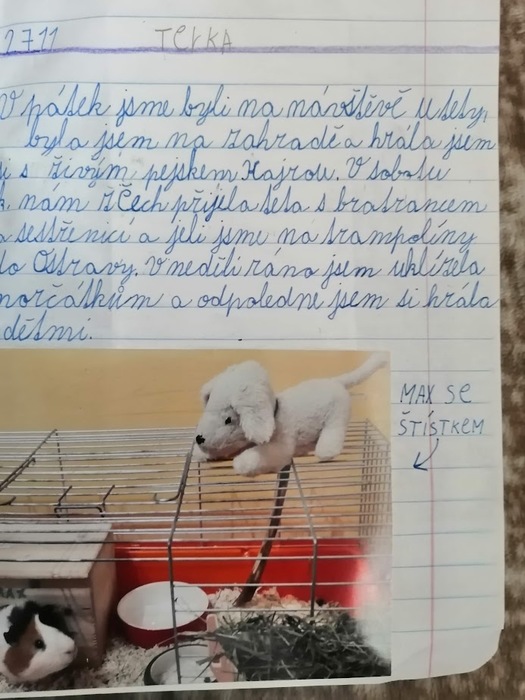 27.11 TERKA
V pátek jsme byli na návštěvě u tety,
byla jsem na zahradě a hrála jsem
s živým pejskem Hajrou. V sobotu
k nám z Čech přijela teta s bratrancem
a sestřenicí a jeli jsme na trampolíny
do Ostravy. V neděli ráno jsem uklízela
morčátkům a odpoledne jsem si hrála
dětmi.
MAX SE
ŠTÍSTKEM
MAX